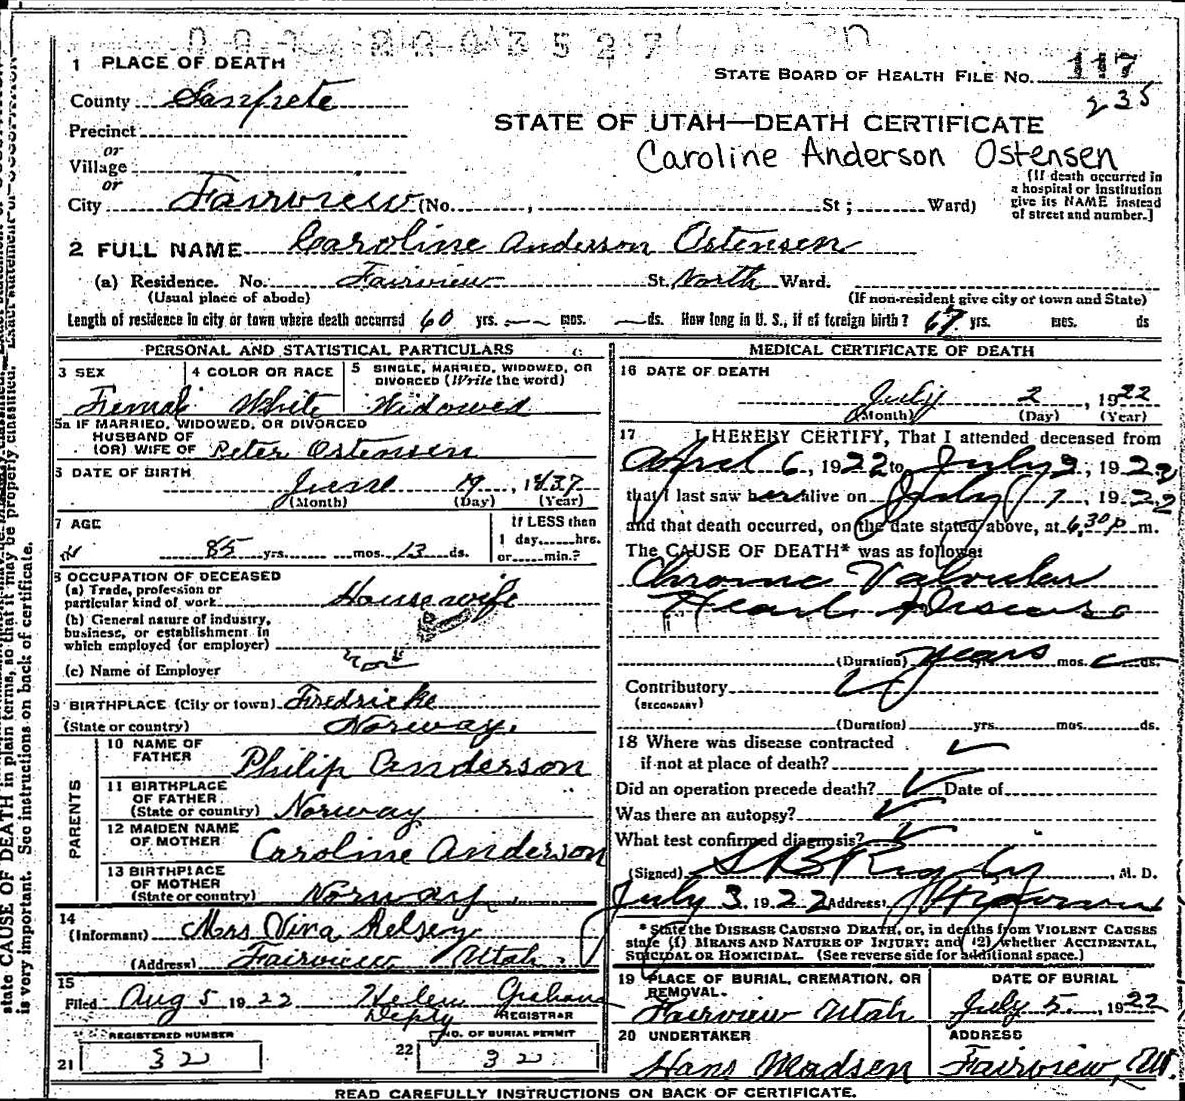 1 PLACE OF DEATH
STATE BOARD OF HEALTH FILE NO. 117
235
County Sanpete
STATE OF UTAH—DEATH CERTIFICATE
Precinct
or
Caroline Anderson Ostensen
Village
or
(If death occurred in
a hospital or institution
give its NAME instead
of street and number.]
City Fairview (No. , St ; Ward)
2 FULL NAME Caroline Anderson Ostensen
(a) Residence. No. Fairview St. North Ward.
(Usual place of abode) (If non-resident give city or town and State)
Length of residence in city or town where death occurred 60 yrs. mos. ds. How long in U. S., if of foreign birth? 67 yrs. mos. ds
PERSONAL AND STATISTICAL PARTICULARS
3 SEX 4 COLOR OR RACE 5 SINGLE, MARRIED, WIDOWED, OR
DIVORCED (Write the word)
Female White Widowed
5a IF MARRIED, WIDOWED, OR DIVORCED
HUSBAND OF
(OR) WIFE OF Peter Ostensen
6 DATE OF BIRTH
June , 1837
(Month) (Day) (Year)
7 AGE If LESS then
1 day, hrs.
85 yrs. mos. 13 ds. or min.?
8 OCCUPATION OF DECEASED
(a) Trade, profession or
particular kind of work Housewife
(b) General nature of industry,
business, or establishment in
which employed (or employer)
(c) Name of Employer
9 BIRTHPLACE (City or town) Fredricke
(State or country) Norway.
PARENTS
10 NAME OF
FATHER Philip Anderson
11 BIRTHPLACE
OF FATHER
(State or country) Norway
12 MAIDEN NAME
OF MOTHER Caroline Anderson
13 BIRTHPLACE
OF MOTHER
(State or country) Norway
14
(Informant) Mrs Vina
(Address) Fairview Utah.
15
Filed Aug 5 1922 Helen Graham
Depty REGISTRAR
REGISTERED NUMBER NO. OF BURIAL PERMIT
21 32 22 32
MEDICAL CERTIFICATE OF DEATH
16 DATE OF DEATH
July 2, 1922
(Month) (Day) (Year)
17 I HEREBY CERTIFY, That I attended deceased from
April 6, 1922 to July 2, 1922
that I last saw her alive on July 1, 1922
and that death occurred, on the date stated above, at 6,30 p m.
The CAUSE OF DEATH* was as follows:
Chronic Valvular
Heart Disease
(Duration) years mos. ds.
Contributory
(SECONDARY)
(Duration) yrs. mos. ds.
18 Where was disease contracted
if not at place of death?
Did an operation precede death? Date of
Was there an autopsy?
What test confirmed diagnosis?
(Signed) , M. D.
July 3, 1922 (Address)
* State the DISEASE CAUSING DEATH, or, in deaths from VIOLENT CAUSES
state (1) MEANS AND NATURE OF INJURY; and (2) whether ACCIDENTAL,
SUICIDAL OR HOMICIDAL. (See reverse side for additional space.)
19 PLACE OF BURIAL, CREMATION, OR
REMOVAL. DATE OF BURIAL
Fairview Utah July 5, 1922
20 UNDERTAKER ADDRESS
Hans Madsen Fairview, Ut.
READ CAREFULLY INSTRUCTIONS ON BACK OF CERTIFICATE.
state CAUSE OF DEATH in plain terms, so that it may be properly classified.
is very important. See instructions on back of certificate.